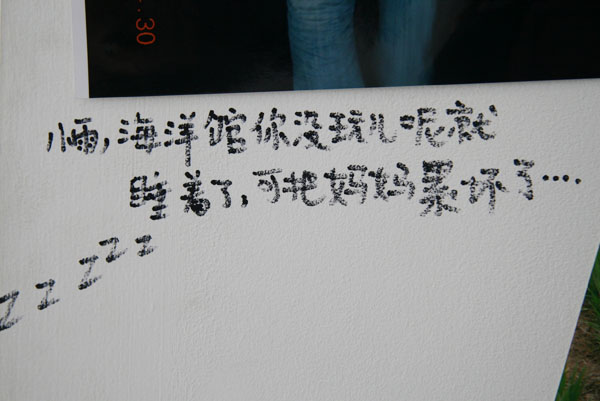 .30
海洋馆你没玩儿呢就
睡着了,可把妈妈累坏了…
z z z z z